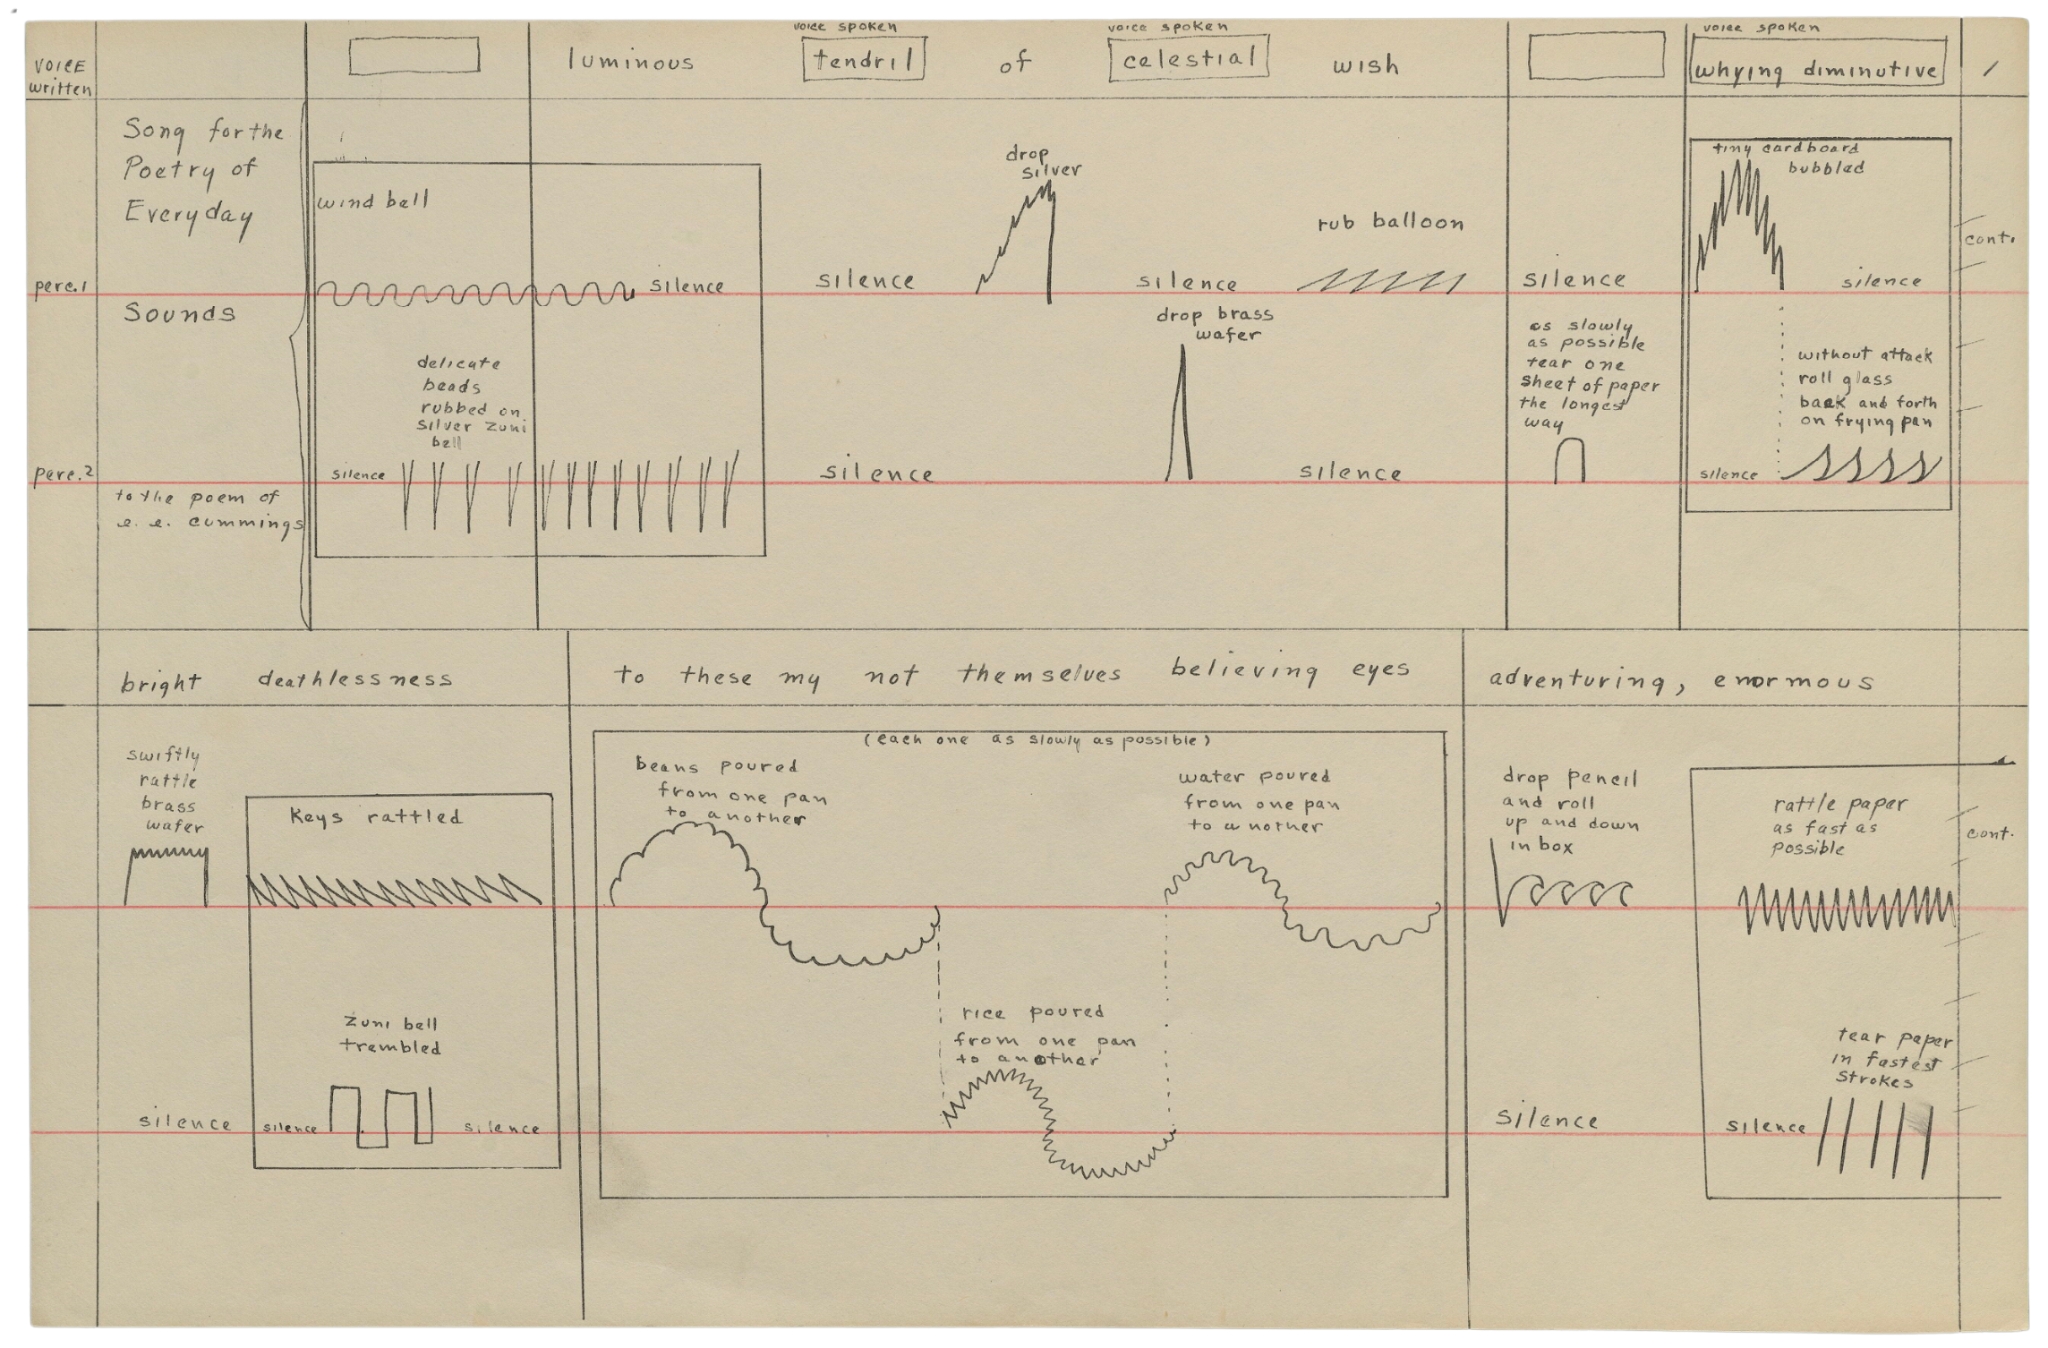 voice written
luminous
voice spoken
tendril
of
voice spoken
celestial
wish
voice spoken
whying diminutive
Song for the
Poetry of
Everyday
Sounds
to the poem of
e. e. cummings
perc.1
wind bell
silence
silence
drop
silver
silence
rub balloon
silence
tiny cardboard
bubbled
silence
cont.
perc.2
silence
delicate
beads
rubbed on
silver zuni
bell
silence
drop brass
wafer
silence
as slowly
as possible
tear one
sheet of paper
the longest
way
silence
without attack
roll glass
back and forth
on frying pan
bright deathlessness
to these my not themselves believing eyes
adventuring, enormous
swiftly
rattle
brass
wafer
keys rattled
(each one as slowly as possible)
beans poured
from one pan
to another
water poured
from one pan
to another
drop pencil
and roll
up and down
in box
rattle paper
as fast as
possible
cont.
silence
silence
zuni bell
trembled
silence
rice poured
from one pan
to another
silence
silence
tear paper
in fastest
strokes